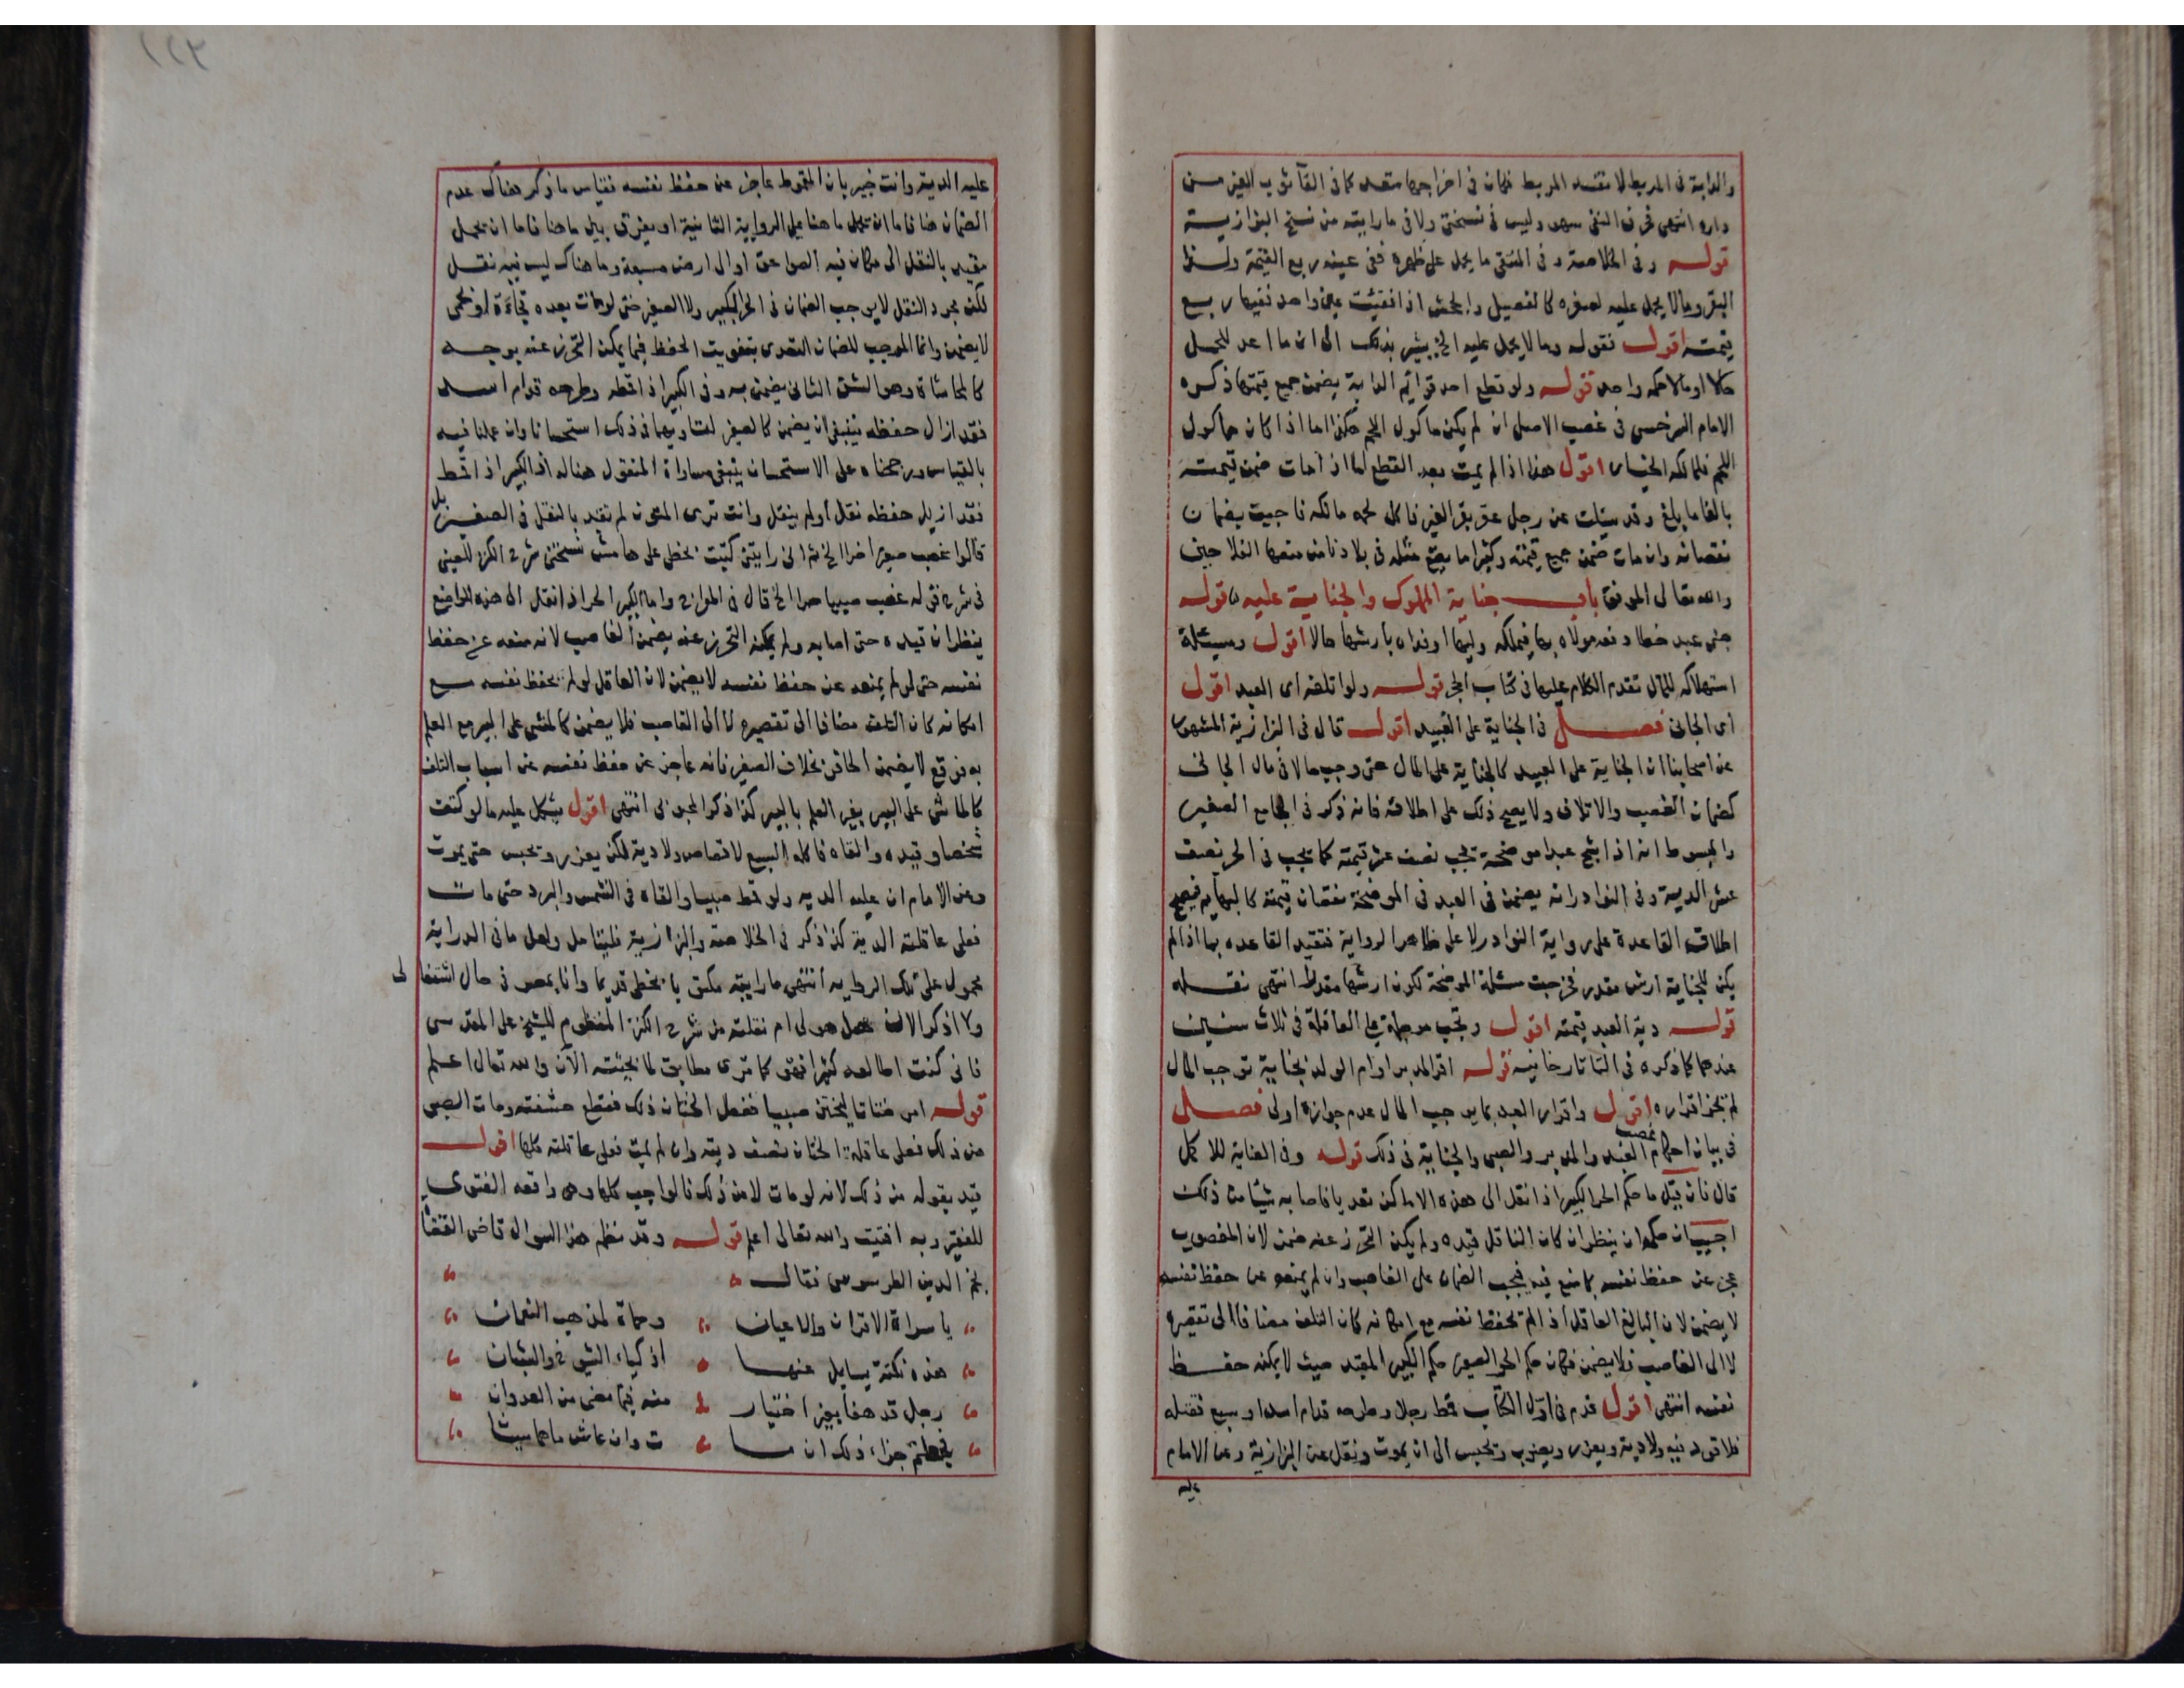 والدابة فى المربط لا تفسد المربط فكان فى اخراجها متعد كما فى القآ ثوب الغير من
داره انتهى فحرف النفى سهو وليس فى نسختى ولا فى ما رايته من نسخ البزازية
قوله وفى الخلاصة وفى المنتقى ما يحمل على ظهره ففى عينه ربع القيمة ولو
البقر وما لا يحمل عليه لصغره كالفصيل والجحش اذا فقئت عين واحد ففيها ربع
قيمته اقول فقوله وما لا يحمل عليه الخ يشير بذلك الى ان ما اعد للحمل
حالا او مالا حكمه واحد قوله ولو قطع احد قوائم الدابة يضمن جميع قيمتها ذكره
الامام السرخسى فى غصب الاصل ان لم يكن ماكول اللحم هكذا اما اذا كان ماكول
اللحم فلمالكه الخيار اقول هذا اذا لم يمت بعد القطع اما اذا مات ضمن قيمته
بالغا ما بلغ وقد سئلت عن رجل عقر بقر الغير فاكل لحمه مالكه فاجبت بضمان
نقصانه وان مات ضمن جميع قيمته وكثيرا ما يقع مثله فى بلادنا من متعصا الفلاحين
والله تعالى الموفق باب جناية المملوك والجناية عليه قوله
جنى عبد خطا دفعه مولاه بها فيملكه وليها او فداه بارشها حالا اقول ومسئلة
استهلاكه للمال تقدم الكلام عليها فى كتاب الحجر قوله ولو اتلفه اى العبد اقول
اى الجانى فصل فى الجناية على العبيد اقول قال فى البزازية المشهور
عن اصحابنا ان الجناية على العبيد كالجناية على المال حتى وجب حالا فى مال الجانى
كضمان الغصب والاتلاف ولا يصح ذلك على اطلاقه فانه ذكر فى الجامع الصغير
والمبسوط انه اذا شج عبدا موضحة تجب نصف عشر قيمته كما يجب فى الحر نصف
عشر الدية وفى النوادر انه يضمن فى العبد فى الموضحة نقصان قيمته كالبهايم فيصح
اطلاق القاعدة على رواية النوادر لا على ظاهر الرواية فتقيد القاعده بما اذا لم
يكن للجناية ارش مقدر فخرجت مسئلة الموضحة لكون ارشها مقدرا انتهى نقله
قوله دية العبد قيمته اقول وتجب مؤجلة على العاقلة فى ثلاث سنين
عندهما كما ذكره فى التاتارخانيه قوله اقر المدبر او ام الولد بجناية توجب المال
لم يجز اقراره اقول واقرار العبد بما يوجب المال عدم جوازه اولى فصل
فى بيان احكام غصب العبد والمدبر والصبى والجناية فى ذلك قوله وفى العناية للاكمل
قال فان قيل ما حكم الحر الكبير اذا نقل الى هذه الاماكن تعديا فاصابه شئ من ذلك
اجيب ان حكمه ان ينظر ان كان الناقل قيده ولم يكن التحرز عنه ضمن لان المغصوب
عجز عن حفظ نفسه بما صنع فيه فيجب الضمان على الغاصب وان لم يمنعه عن حفظ نفسه
لا يضمن لان البالغ العاقل اذا لم تحفظ نفسه مع امكانه كان التلف مضافا الى تقصيره
لا الى الغاصب فلا يضمن فكان حكم الحر الصغير حكم الكبير المقيد حيث لا يمكنه حفظ
نفسه انتهى اقول قدم فى اول الكتاب قمط رجلا وطرحه قدام اسد او سبع فقتله
فلا قود فيه ولا دية ويعزر ويضرب وتحبس الى ان يموت ونقل عن البزازية وعن الامام
عليه
عليه الدية وانت خبير بان المقموط عاجز عن حفظ نفسه فقياس ما ذكر هناك عدم
الضمان هنا فاما ان تحمل ما هنا على الرواية الثانية او يفرق بين ما هنا فاما ان يحمل
مقيد بالنقل الى مكان فيه الصواعق او الى ارض مسبعة وما هناك ليس فيه نقل
لكن مجرد النقل لا يوجب الضمان فى الحر الكبير ولا الصغير حتى لو مات بعده فجاءة او بحمى
لا يضمن وانما الموجب للضمان التعدى بتفويت الحفظ فيما يمكن التحرز عنه بوجه
كالمحاشاة وهو الشق الثانى يضمن به وفى الكبير اذا قمطه وطرحه قدام اسد
فقد ازال حفظه فينبغى ان يضمن كالصغير لتساويهما فى ذلك استحسانا وان عملنا فيه
بالقياس ورجحناه على الاستحسان ينبغى مساواة المنقول هنالك اذ الكبير اذا قمط
فقد ازيل حفظه نقل او لم ينقل وانت ترى المتون لم تقيد بالنقل فى الصغير بل
قالوا غصب صبيا حرا الخ ثم انى رايتنى كتبت بخطى على هامش نسختى شرح الكنز للعينى
فى شرح قوله غصب صبيا حرا الخ قال فى الموازع واما الكبير الحر اذا نقل الى هذه المواضع
ينظر ان قيده حتى اصابه ولم يمكنه التحرز عنه يضمن الغاصب لانه منعه عن حفظ
نفسه حتى لو لم يمنعه عن حفظ نفسه لا يضمن لان العاقل لو لم يحفظ نفسه مع
امكانه كان التلف مضافا الى تقصيره لا الى الغاصب فلا يضمن كالمشى على البير مع العلم
به فوقع لا يضمن الحافر بخلاف الصغير فانه عاجز عن حفظ نفسه عن اسباب التلف
كالماشى على البير بغير العلم بالبير كذا ذكر المحبوبى انتهى اقول يشكل عليه ما لو كتف
شخصا وقيده والقاه فاكله السبع لا قصاص ولا دية لكن يعزر ويحبس حتى يموت
وعن الامام ان عليه الديه ولو قمط صبيا والقاه فى الشمس والبرد حتى مات
فعلى عاقلته الدية كذا ذكر فى الخلاصة والبزازية فليتامل ولعل ما فى الدراية
محمول على تلك الروايه انتهى ما رايته مكتوبا بخطى قديما وانا بمصر فى حال اشتغالى
ولا اذكر الان هل هو لى ام نقلته من شرح الكنز المنظوم للشيخ على المقدسى
فانى كنت اطالعه كثيرا فهو كما ترى مطابق لما بحثته الآن والله تعالى اعلم
قوله امر ختانا ليختن صبيا ففعل الختان ذلك فقطع حشفته ومات الصبى
من ذلك فعلى عاقلة الختان نصف ديته وان لم يمت فعلى عاقلته كلها اقول
قيد بقوله من ذلك لانه لو مات لا من ذلك فالواجب كلها وهى واقعة الفتوى
للفقير وبه افتيت والله تعالى اعلم قوله وقد نظم هذا السوال قاضى القضاة
نجم الدين الطرسوسى فقال
يا سراة الاقران والاعيان وحماة لمذهب النعمان
هذه نكتة يسايل عنها اذكياء الشيوخ والشبان
رجل قد هفا بغير اختيار منه فيما مضى من العدوان
فجعلتم جزاء ذلك ان ما ت وان عاش ما هما سيان